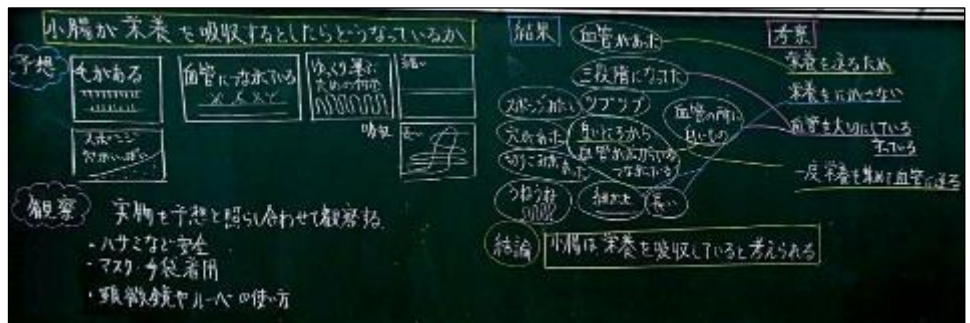 小腸が栄養を吸収するとしたらどうなっているか
予想
毛がある
血管につながっている
ゆっくり運ぶ
ための
細い
スポンジ
穴がいっぱい
吸収
長い
観察
実物を予想と照らし合わせて観察する
・ハサミなど安全
・マスク・手袋着用
・顕微鏡やルーペの使い方
結果
血管があった
三段階になってた
スポンジみたい
プツプツ
穴があった
白いところから
血管が広がっている
つながっている
血管の所に
白いもの
うねうね
細かった
長い
考察
栄養を送るため
栄養をにがさない
血管を大切にしている
守っている
一度栄養を集めて血管に送る
結論
小腸は栄養を吸収していると考えられる